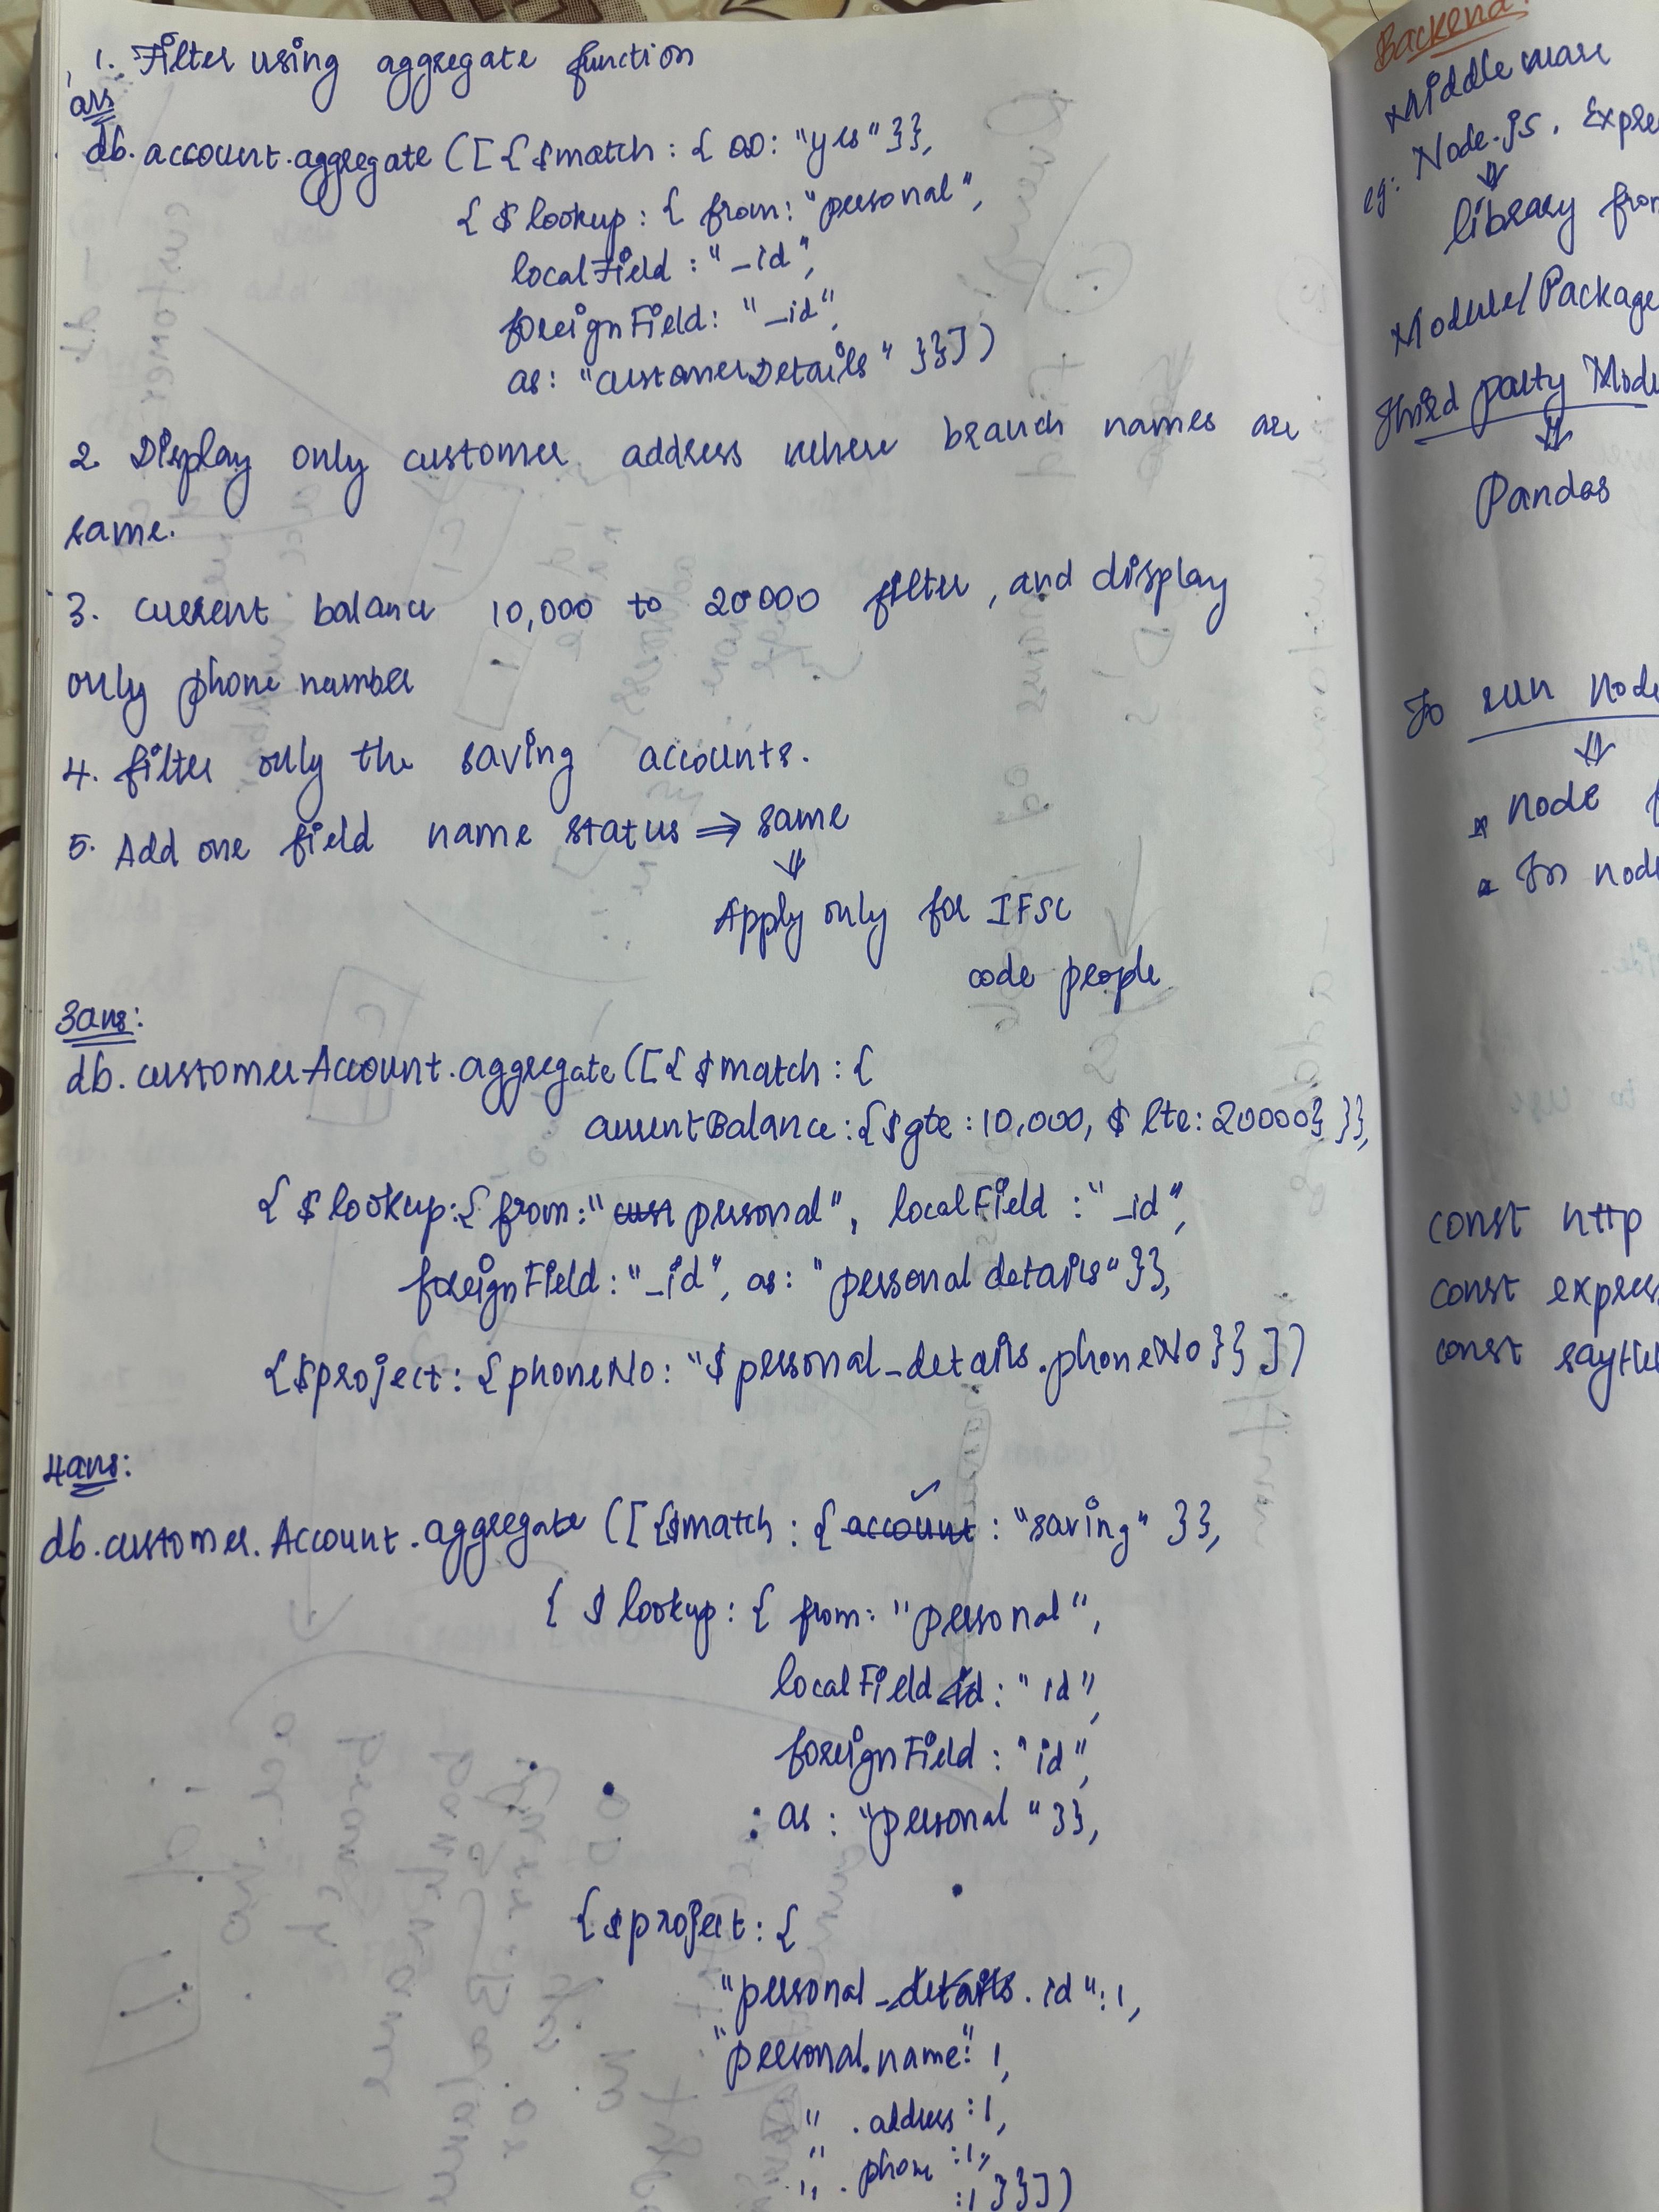 1. Filter using aggregate function
ans
db.account.aggregate ([{$match : { OD: "yes" }},
{ $ lookup : { from: "personal",
localField : "_id",
foreignField: "_id",
as: "customerDetails" }}])
2. Display only customer address where branch names are
same.
3. current balance 10,000 to 20000 filter, and display
only phone number
4. filter only the saving accounts.
5. Add one field name status ⇒ same
⇓
Apply only for IFSC
code people
3ans:
db.customerAccount.aggregate([{ $match : {
currentBalance:{$gte:10,000, $ lte: 20000} }},
{ $ lookup:{ from:"cust personal", localField : "_id",
foreignField: "_id", as: "personal details" }},
{$project: {phoneNo: "$ personal_details.phoneNo }} ])
4ans:
db.customer.Account.aggregate ([{$match : {account : "saving" }},
{ $ lookup: { from: "personal",
localField id : "id",
foreignField : "id",
: as : "personal" }},
{$project: {
"personal_details.id":1,
"personal.name": 1,
" .address :1,
" .phone :1,
" :1 }}])
Backend:
Middleware
eg: Node.js, Expre
⇓
library from
Module/Package
Third party Modu
⇓
Pandas
To run node
⇓
node
In node
const http
const express
const